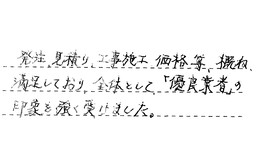 発注、見積り、工事施工、価格等、概ね、
満足しており、全体として「優良業者」の
印象を強く受けました。